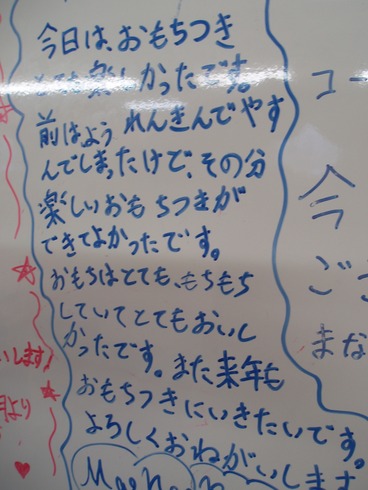 今日は、おもちつき
とても楽しかったです。
前はよう れんきんでやす
んでしまったけで、その分
楽しいおもちつきが
できてよかったです。
おもちはとても、もちもち
していてとてもおいし
かったです。また来年も
おもちつきにいきたいです。
よろしくおねがいします
コー
今
ごさ
まな
いします!
月より